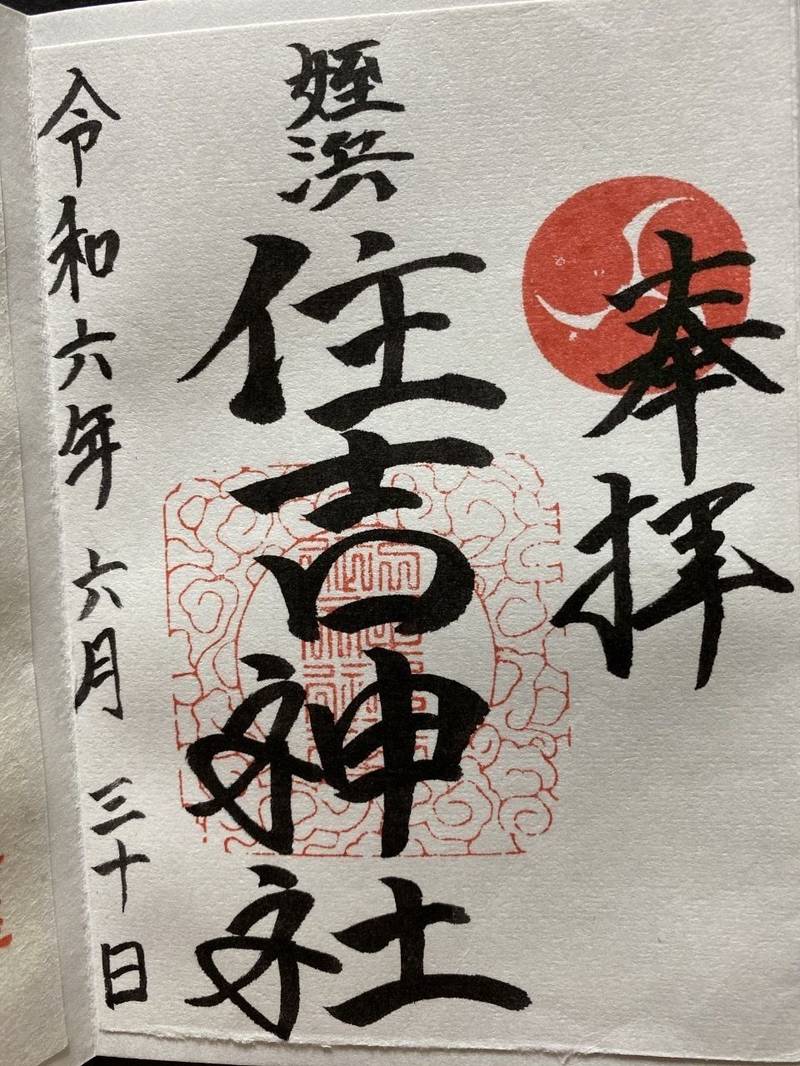 奉拝
姪浜
住吉神社
令和六年六月三十日